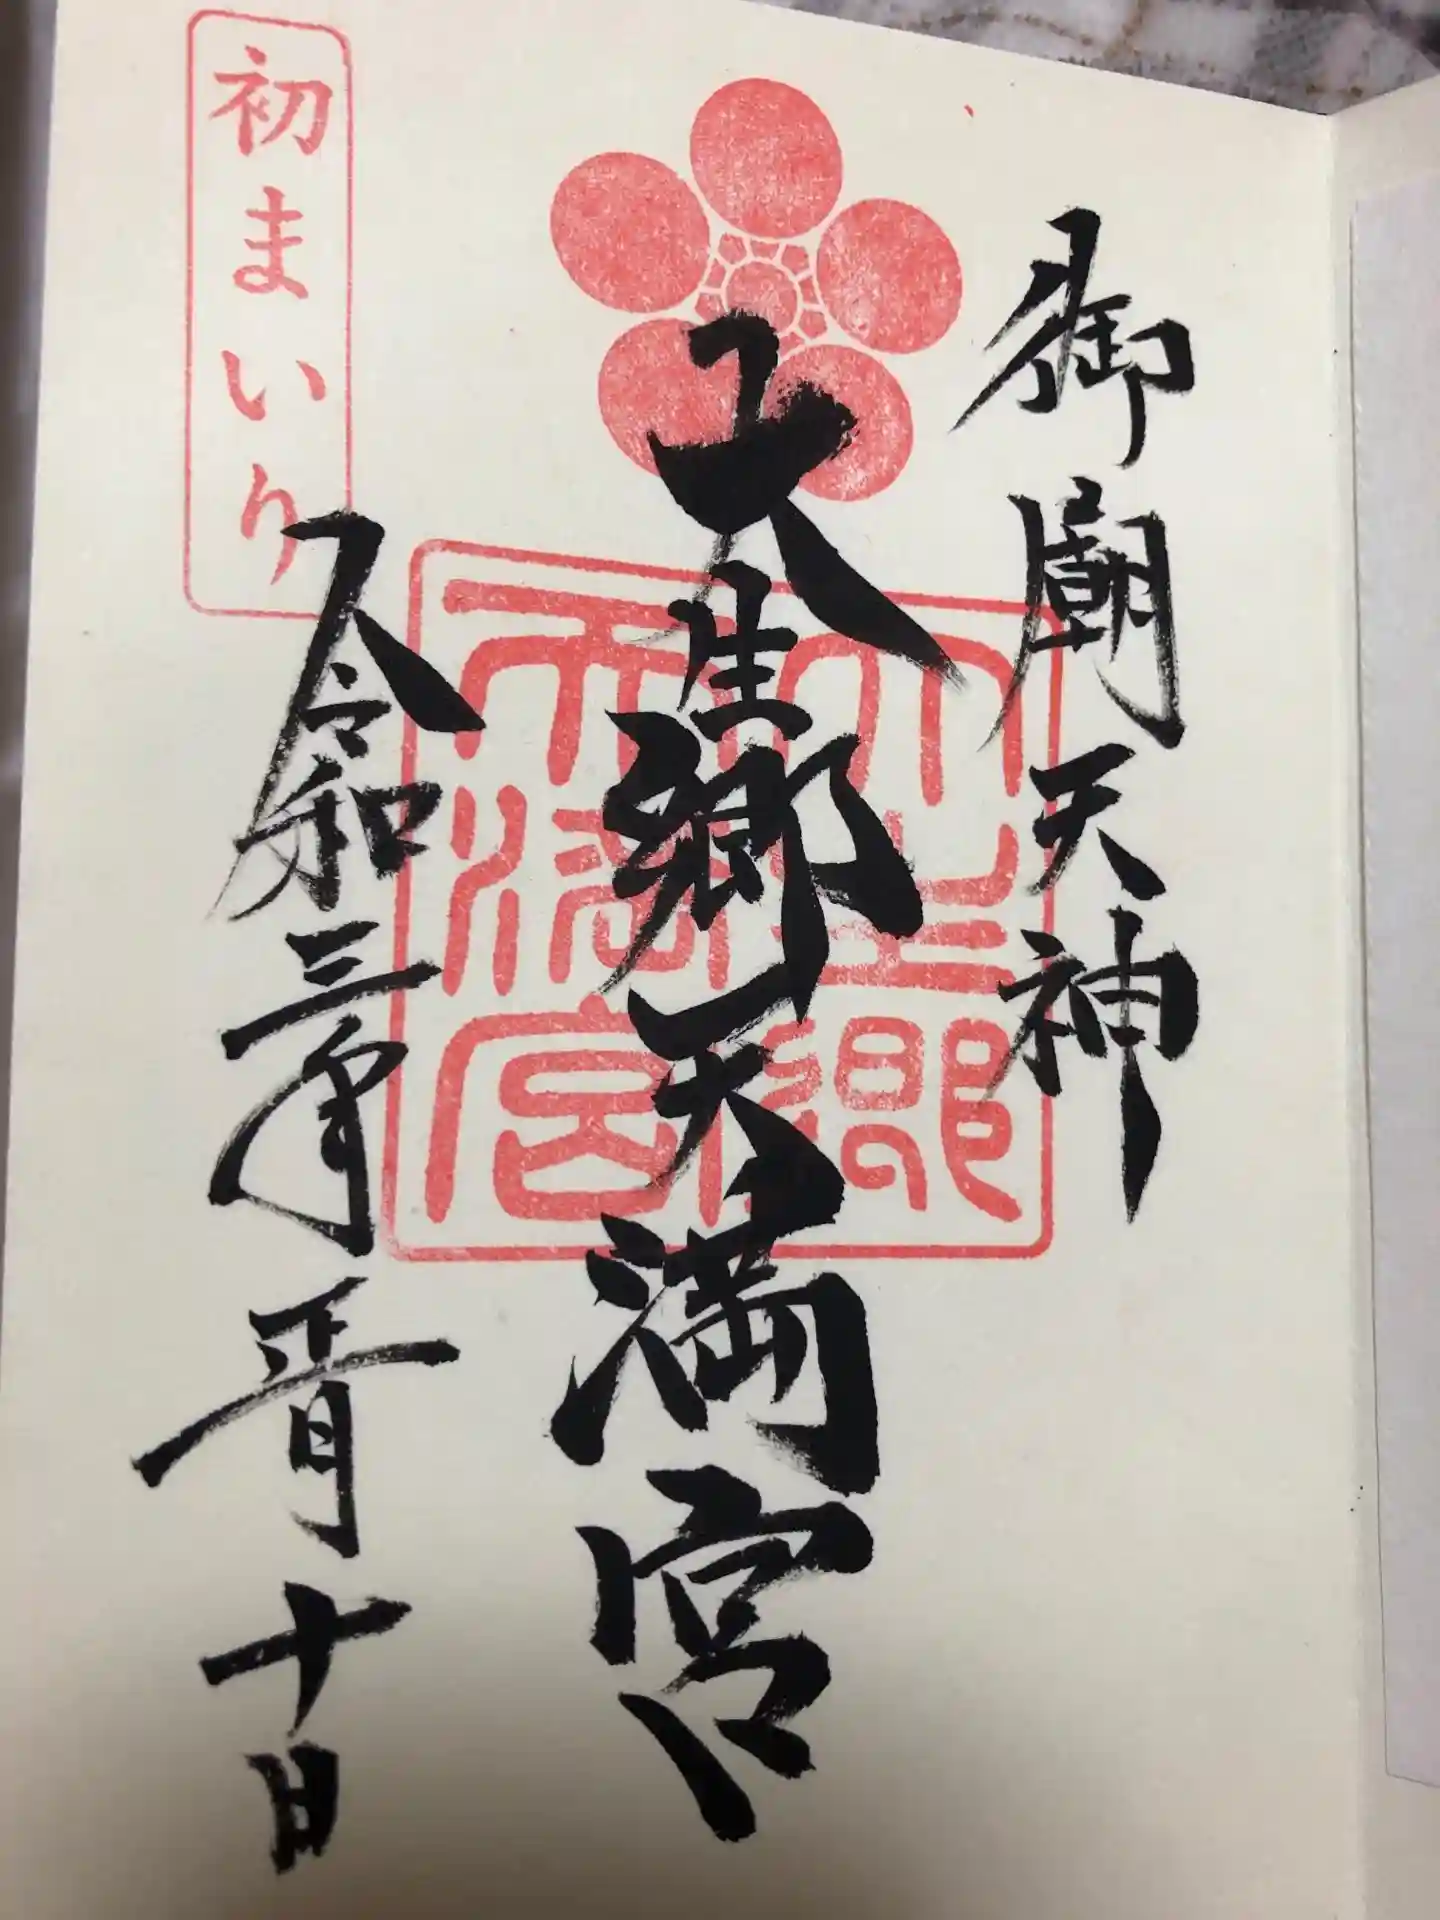 御廟天神
大生郷天満宮
令和三年正月十日
初まいり
大生郷
天満宮